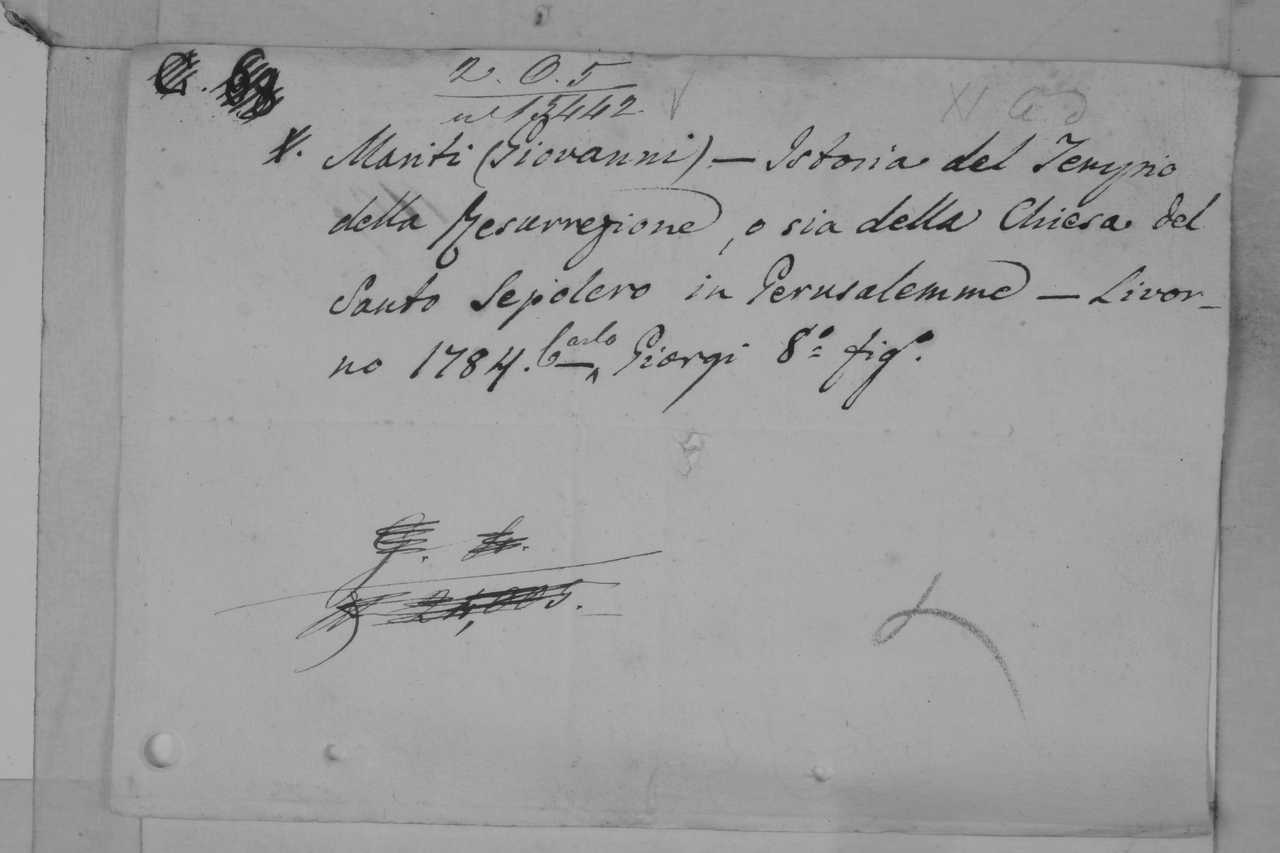 C. 68
2. O. 5
n.º 13442
XI a d
X. Mariti (Giovanni) — Istoria del Tempio
della Resurrezione, o sia della Chiesa del
Santo Sepolcro in Gerusalemme — Livor-
no 1784. Carlo Giorgi 8.º fig.º
24,005.